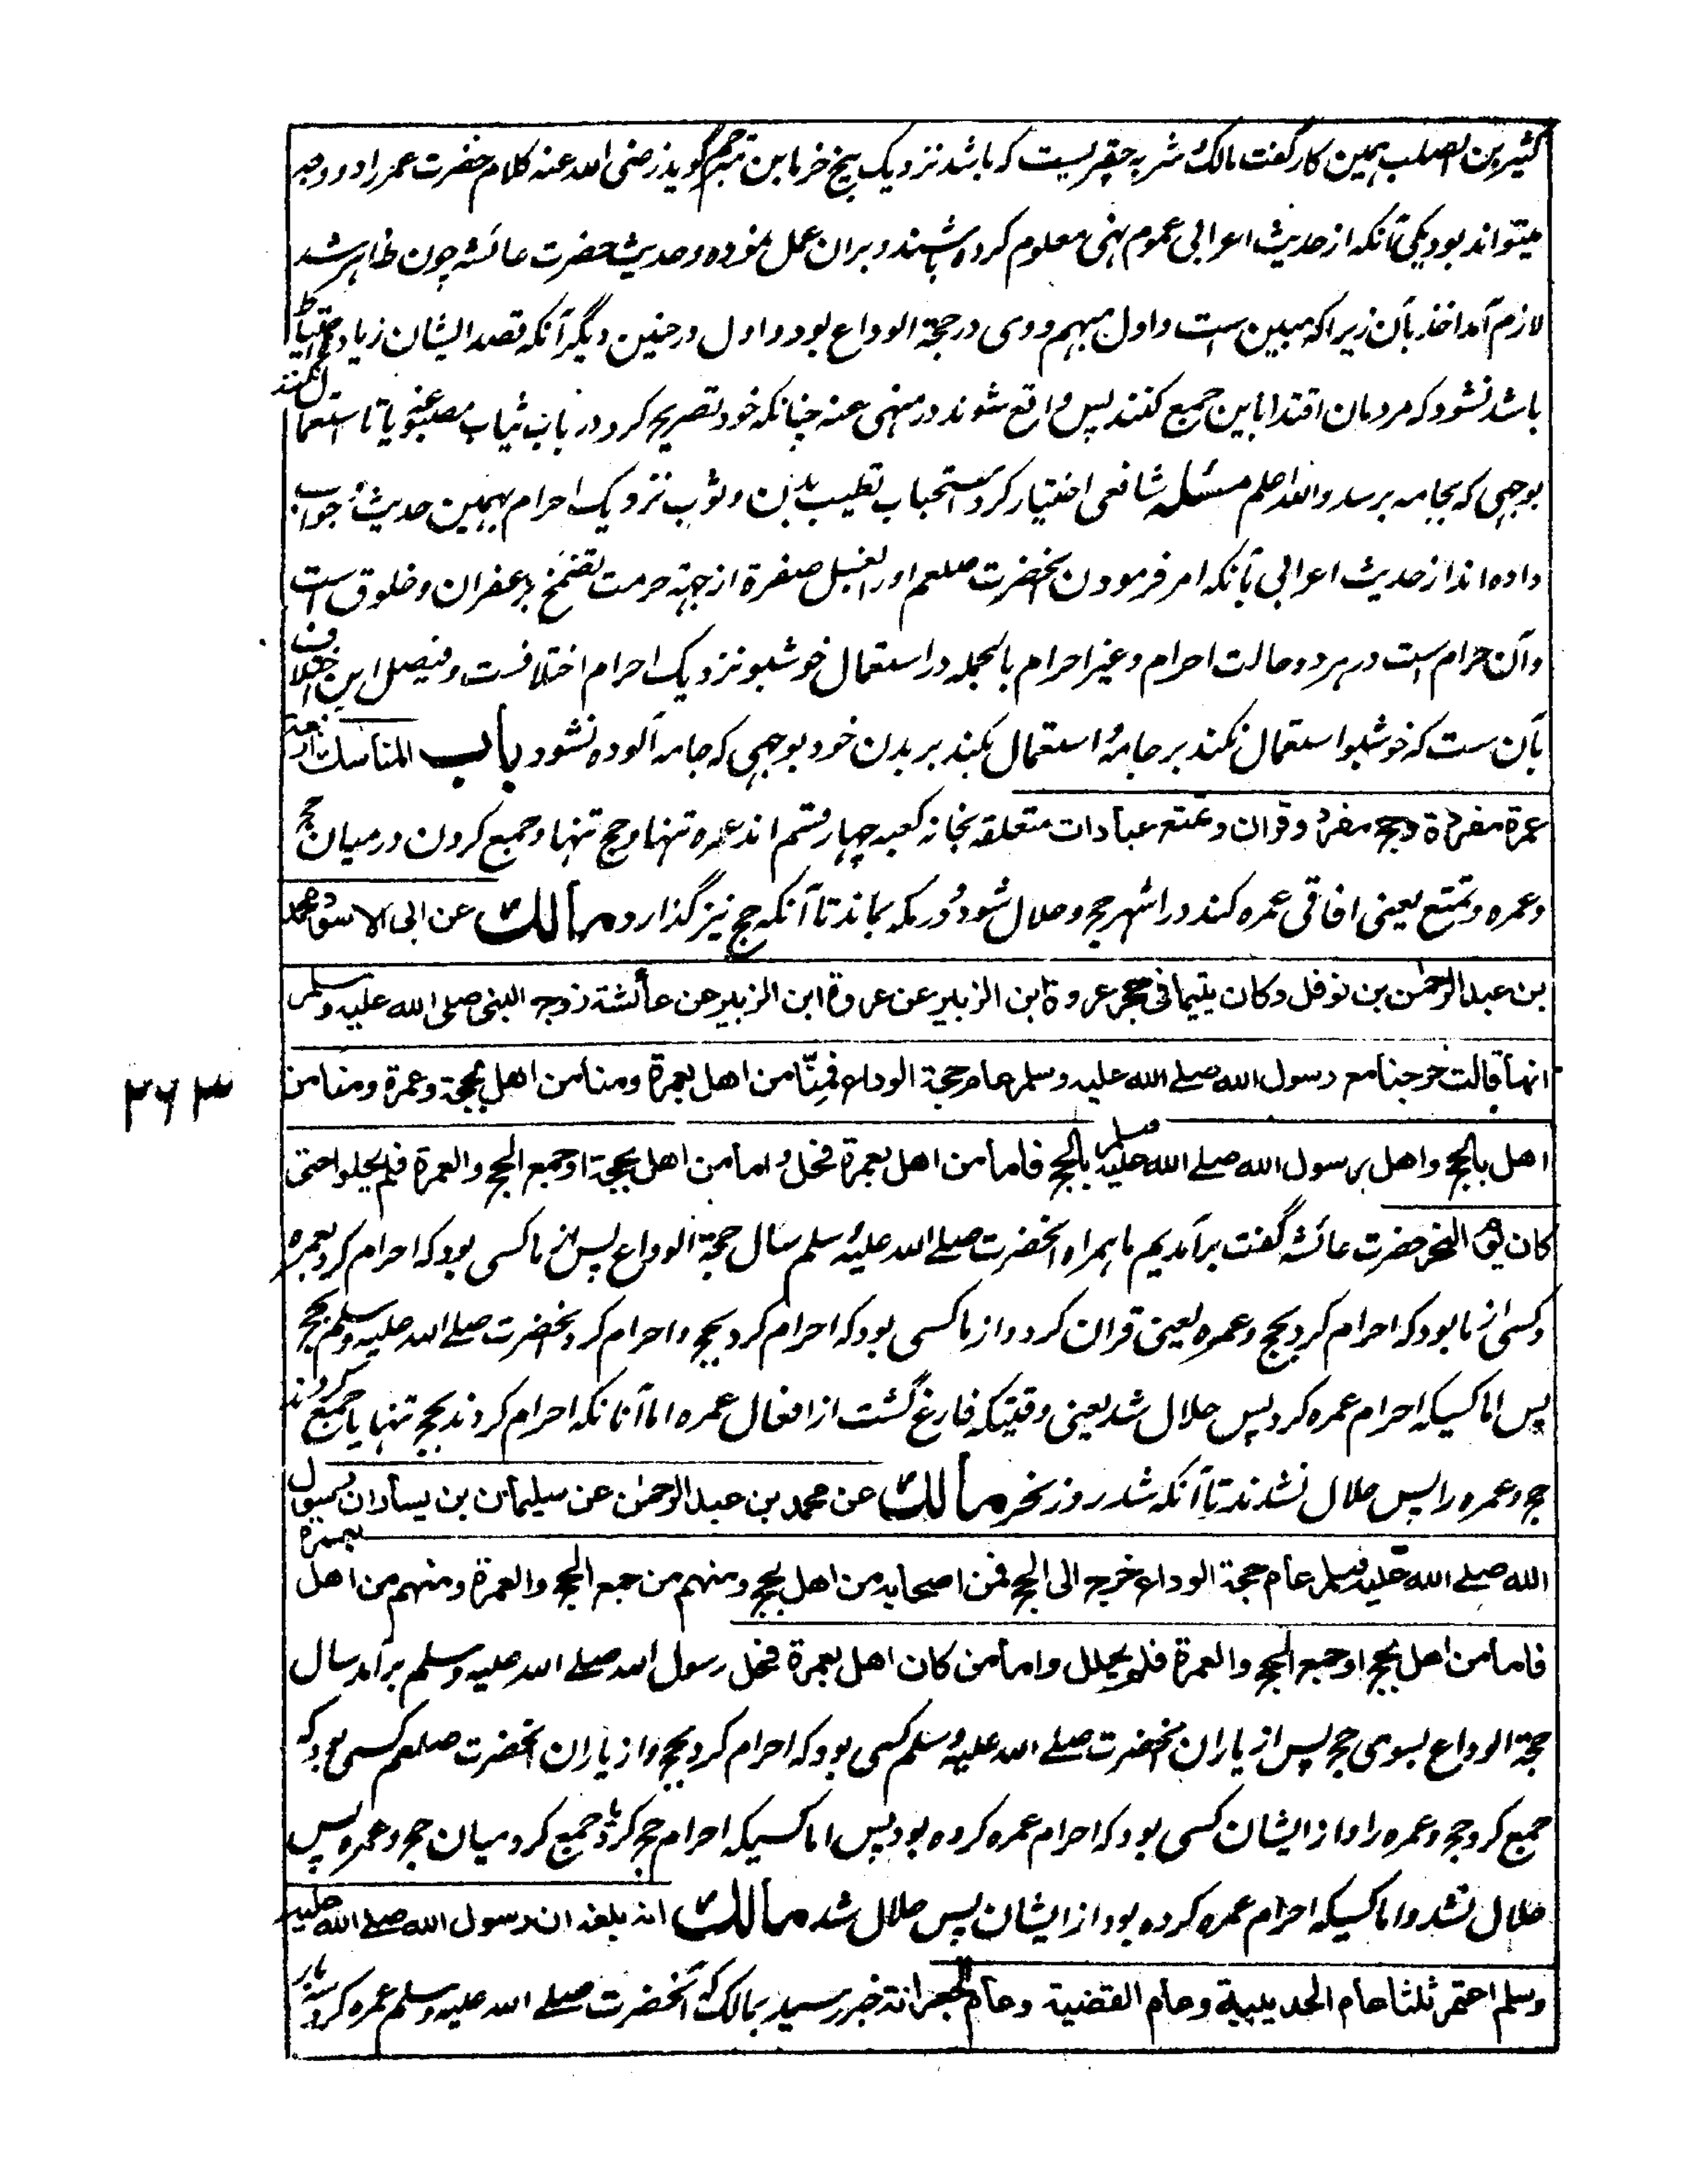 کثیر بن الصلب همین کار گفت مالک شربه حفیریست که باشد نزدیک بیخ خرمابن مترجم گوید رضی الله عنه کلام حضرت عمر را دو وجه
میتواند بود یکی آنکه از حدیث اعرابی عموم نهی معلوم کرده باشند و بران عمل نموده و حدیث حضرت عائشه چون ظاهر شد
لازم آمد اخذ بآن زیرا که مبین ست و اول مبهم و وی در حجة الوداع بود و اول در حنین دیگر آنکه قصد ایشان زیاد احتیاط
باشد نشود که مردمان اقتدا باین جمع کنند پس واقع شوند در منهی عنه چنانکه خود تصریح کرد در باب ثیاب مصبغه یا تا استعمال نکنند
بوجهی که بجامه برسد والله اعلم مسئله شافعی اختیار کرد استحباب تطییب بدن و ثوب نزدیک احرام بهمین حدیث و جواب
داده اند از حدیث اعرابی بآنکه امر فرمودن آنحضرت صلعم او را بغسل صفرة از جهة حرمت تضمخ بزعفران و خلوق است
و آن حرام است در هر دو حالت احرام و غیر احرام بالجمله در استعمال خوشبو نزدیک احرام اختلافست و فیصل این اختلاف
بآن ست که خوشبو استعمال نکند بر جامه و استعمال بکند بر بدن خود بوجهی که جامه آلوده نشود باب المناسك اربعة
عمرة مفردة وحج مفرد وقران وتمتع عبادات متعلقه بخانه کعبه چهار قسم اند عمره تنها و حج تنها و جمع کردن در میان حج
و عمره و تمتع یعنی افاقی عمره کند در اشهر حج و حلال شود و در مکه بماند تا آنکه حج نیز گذارد مالك عن ابی الاسود محمد
بن عبد الرحمن بن نوفل وکان یتیما فی حجر عروة ابن الزبیر عن عروة ابن الزبیر عن عائشة زوجه النبی صلی الله علیه وسلم
انها قالت خرجنا مع رسول الله صلے الله علیه وسلم عام حجة الوداع فمنّا من اهل بعمرة ومنا من اهل بحجة وعمرة ومنا من
اهل بالحج واهل رسول الله صلے الله علیه وسلم بالحج فاما من اهل بعمرة فحل واما من اهل بحجة او جمع الحج والعمرة فلم یحلوا حتی
کان یوم النحر حضرت عائشه گفت برآمدیم ما همراه آنحضرت صلے الله علیه وسلم سال حجة الوداع پس از ما کسی بود که احرام کرد بعمره
و کسی از ما بود که احرام کرد بحج و عمره یعنی قران کرد و از ما کسی بود که احرام کرد بحج و احرام کرد آنحضرت صلے الله علیه وسلم بحج
پس اما کسیکه احرام عمره کرد پس حلال شد یعنی وقتیکه فارغ گشت از افعال عمره اما آنانکه احرام کردند بحج تنها یا جمع کردند
حج و عمره را پس حلال نشدند تا آنکه شد روز نحر مالك عن محمد بن عبد الرحمن عن سلیمان بن یسار ان رسول
الله صلے الله علیه وسلم عام حجة الوداع خرج الی الحج فمن اصحابه من اهل بحج ومنهم من جمع الحج والعمرة ومنهم من اهل بعمرة
فاما من اهل بحج او جمع الحج والعمرة فلم یحلل واما من کان اهل بعمرة فحل رسول الله صلے الله علیه وسلم برآمد سال
حجة الوداع بسوی حج پس از یاران آنحضرت صلے الله علیه وسلم کسی بود که احرام کرد بحج و از یاران آنحضرت صلعم کسی بود که
جمع کرد حج و عمره را و از ایشان کسی بود که احرام عمره کرده بود پس اما کسیکه احرام حج کرد یا جمع کرد میان حج و عمره پس
حلال نشد و اما کسیکه احرام عمره کرده بود از ایشان پس حلال شد مالك انه بلغه ان رسول الله صلے الله علیه
وسلم اعتمر ثلثا عام الحدیبیة وعام القضیة وعام الجعرانة خبر رسید بمالک که آنحضرت صلے الله علیه وسلم عمره کرد سه بار
۲۶۳